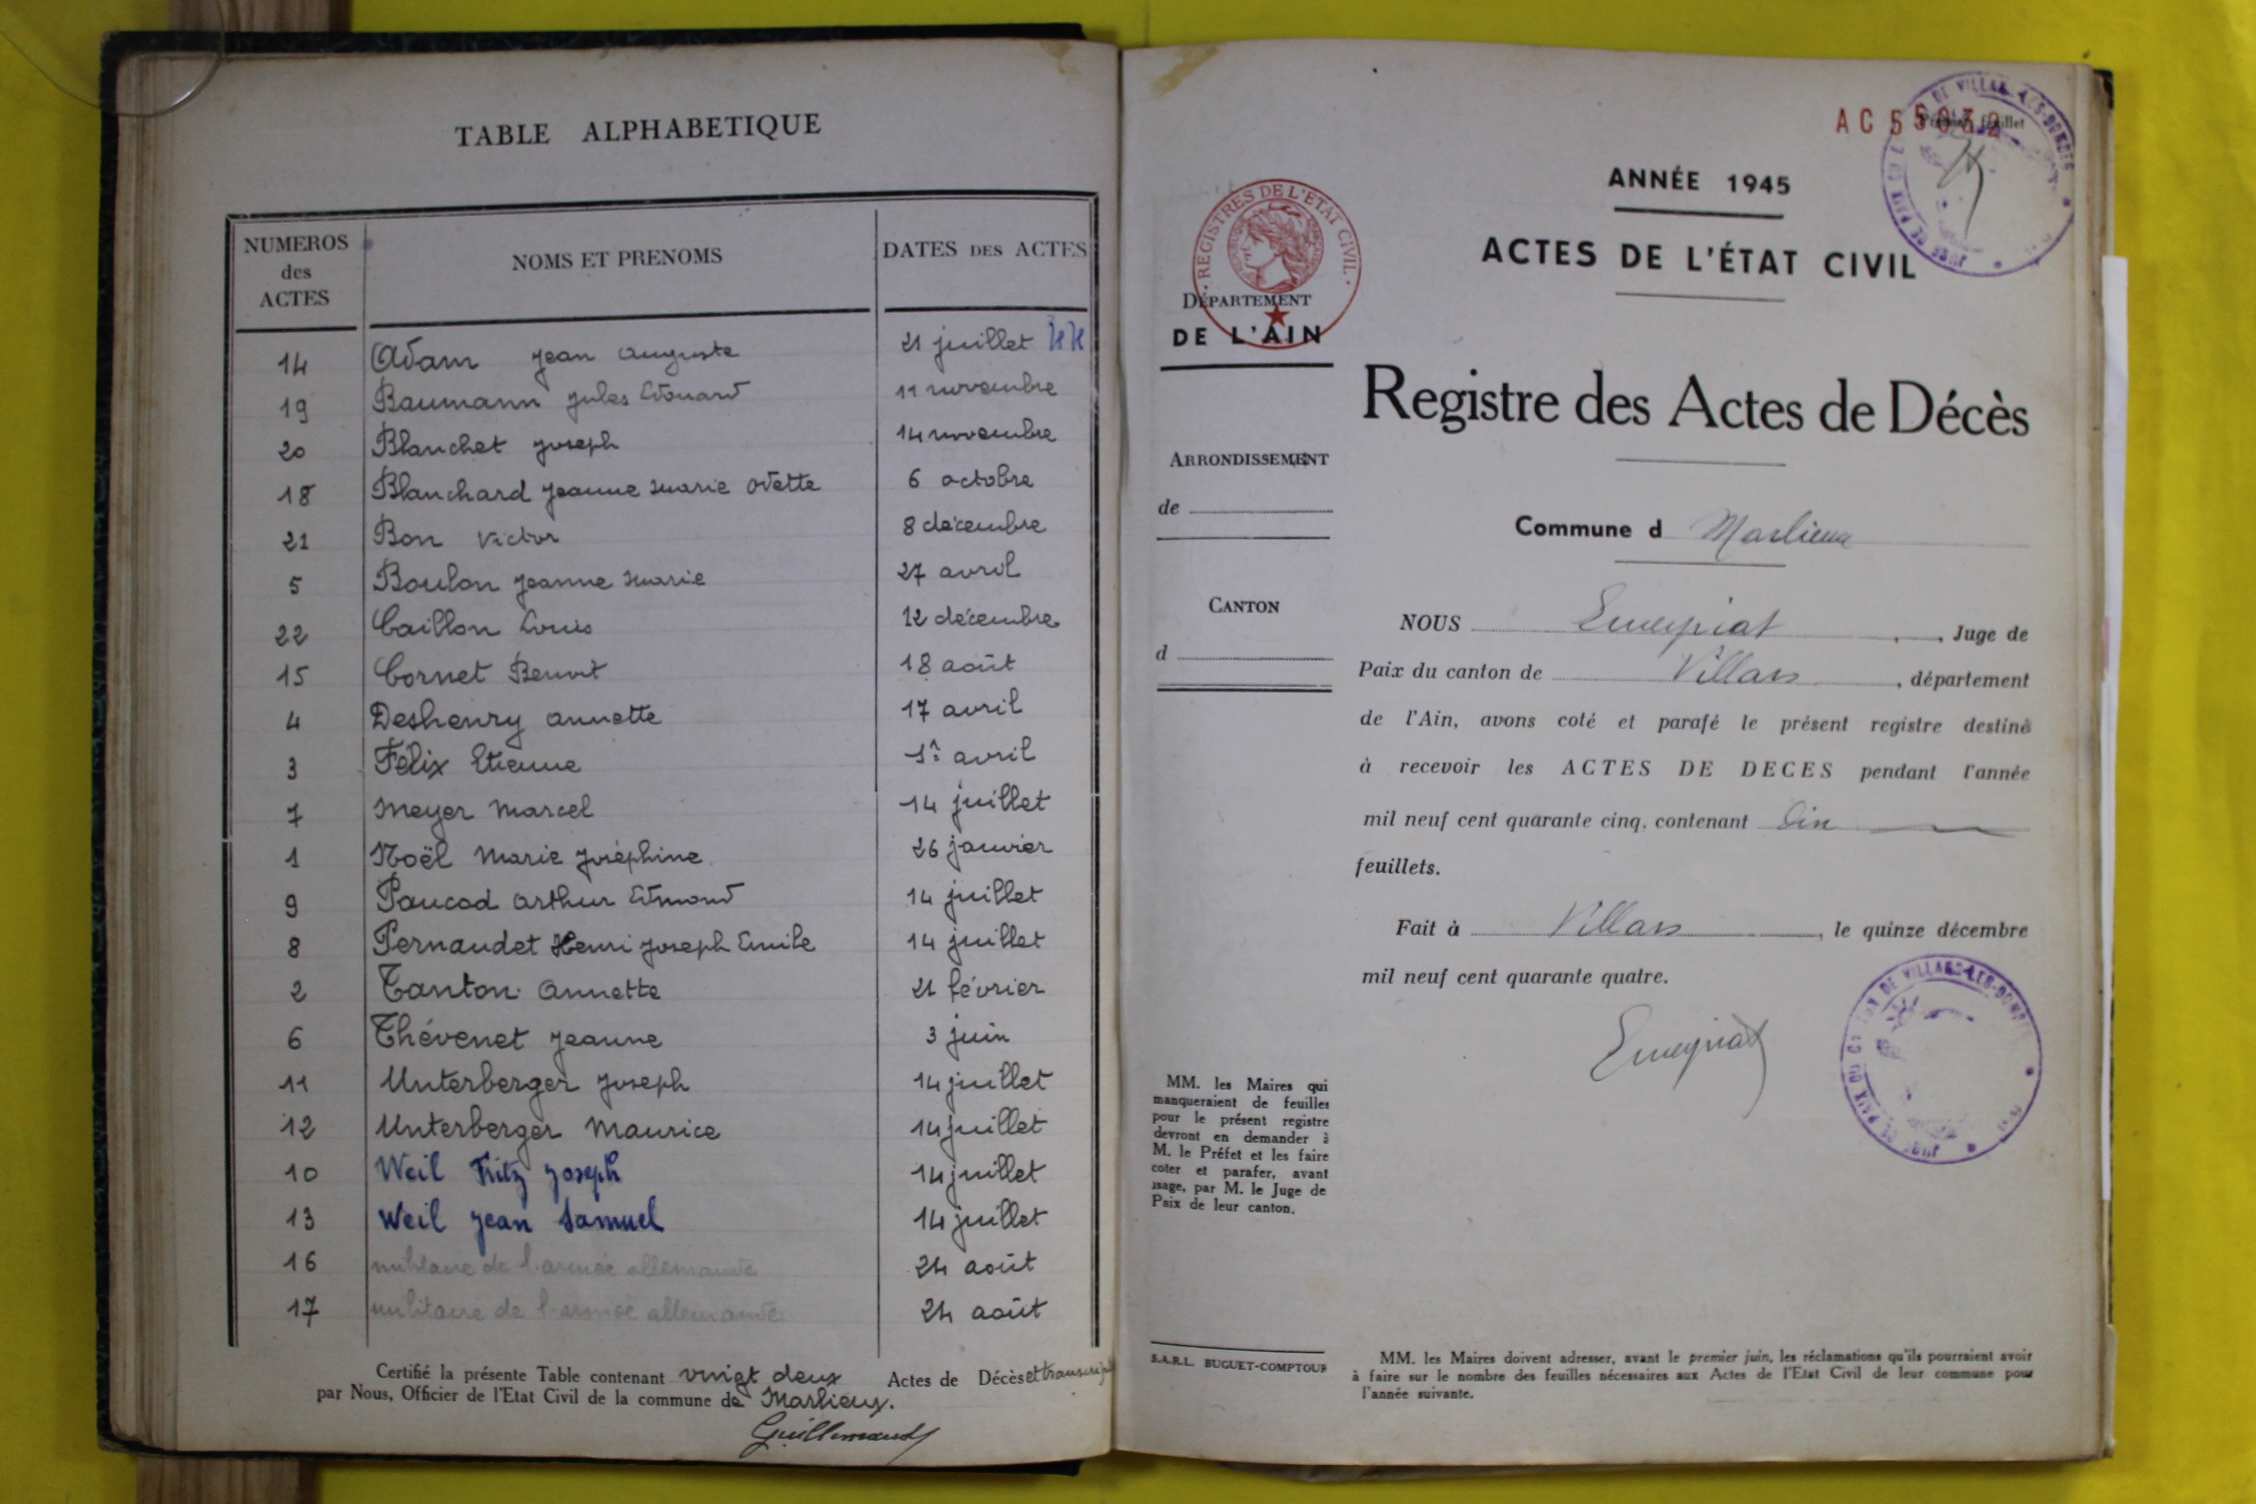 TABLE ALPHABETIQUE
NUMEROS des ACTES NOMS ET PRENOMS DATES DES ACTES
14 Adam Jean Auguste 21 juillet 44
19 Baumann Jules Edouard 11 novembre
20 Blanchet Joseph 14 novembre
18 Blanchard Jeanne Marie Odette 6 octobre
21 Bon Victor 8 décembre
5 Boulon Jeanne Marie 27 avril
22 Caillon Louis 12 décembre
15 Cornet Benoit 18 août
4 Deshenry Annette 17 avril
3 Félix Etienne 1er avril
7 Meyer Marcel 14 juillet
1 Noël Marie Joséphine 26 janvier
9 Paucod Arthur Edmond 14 juillet
8 Pernaudet Henri Joseph Emile 14 juillet
2 Tanton Annette 21 février
6 Thévenet Jeanne 3 juin
11 Unterberger Joseph 14 juillet
12 Unterberger Maurice 14 juillet
10 Weil Fritz Joseph 14 juillet
13 Weil Jean Samuel 14 juillet
16 militaire de l'armée allemande 24 août
17 militaire de l'armée allemande 24 août
Certifié la présente Table contenant vingt deux Actes de Décès et
par Nous, Officier de l'Etat Civil de la commune de Marlieux.
AC
feuillet
ANNÉE 1945
ACTES DE L'ÉTAT CIVIL
REGISTRES DE L'ÉTAT CIVIL
DÉPARTEMENT
DE L'AIN
Registre des Actes de Décès
ARRONDISSEMENT
de
Commune d Marlieux
CANTON
d
NOUS Emeyriat, Juge de
Paix du canton de Villars, département
de l'Ain, avons coté et parafé le présent registre destiné
à recevoir les ACTES DE DECES pendant l'année
mil neuf cent quarante cinq, contenant
feuillets.
Fait à Villars, le quinze décembre
mil neuf cent quarante quatre.
Emeyriat
MM. les Maires qui
manqueraient de feuilles
pour le présent registre
devront en demander à
M. le Préfet et les faire
coter et parafer, avant
usage, par M. le Juge de
Paix de leur canton.
S.A.R.L. BUGUET-COMPTOUR
MM. les Maires doivent adresser, avant le premier juin, les réclamations qu'ils pourraient avoir
à faire sur le nombre des feuilles nécessaires aux Actes de l'Etat Civil de leur commune pour
l'année suivante.